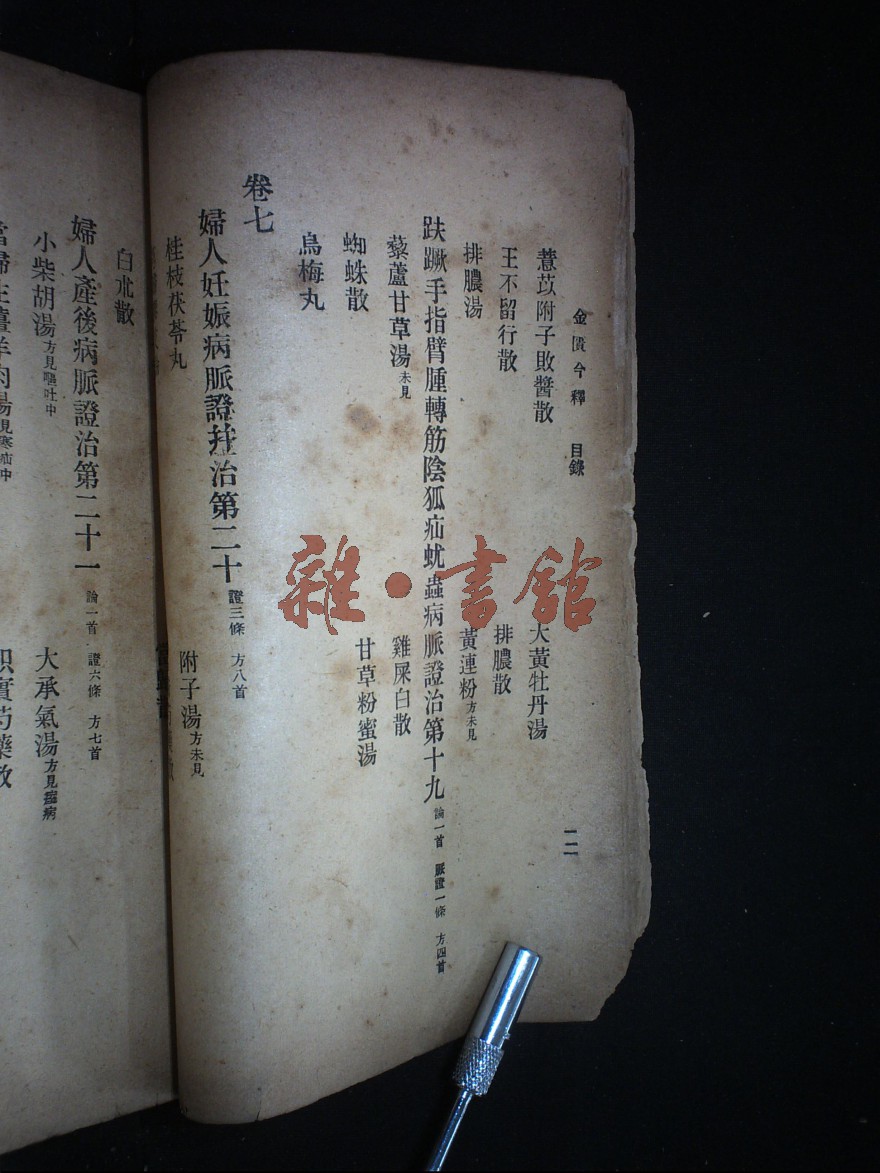 金匱今釋 目錄
一二
薏苡附子敗醬散 大黃牡丹湯
王不留行散 排膿散
排膿湯 黃連粉方未見
趺蹶手指臂腫轉筋陰狐疝蚘蟲病脈證治第十九 論一首 脈證一條 方四首
藜蘆甘草湯未見 雞屎白散
蜘蛛散 甘草粉蜜湯
烏梅丸
卷七
婦人妊娠病脈證并治第二十 證三條 方八首
桂枝茯苓丸 附子湯方未見
白朮散
婦人產後病脈證治第二十一 論一首 證六條 方七首
小柴胡湯方見嘔吐中 大承氣湯方見痙病
羊肉湯見寒疝中 枳實芍藥散
雜·書館